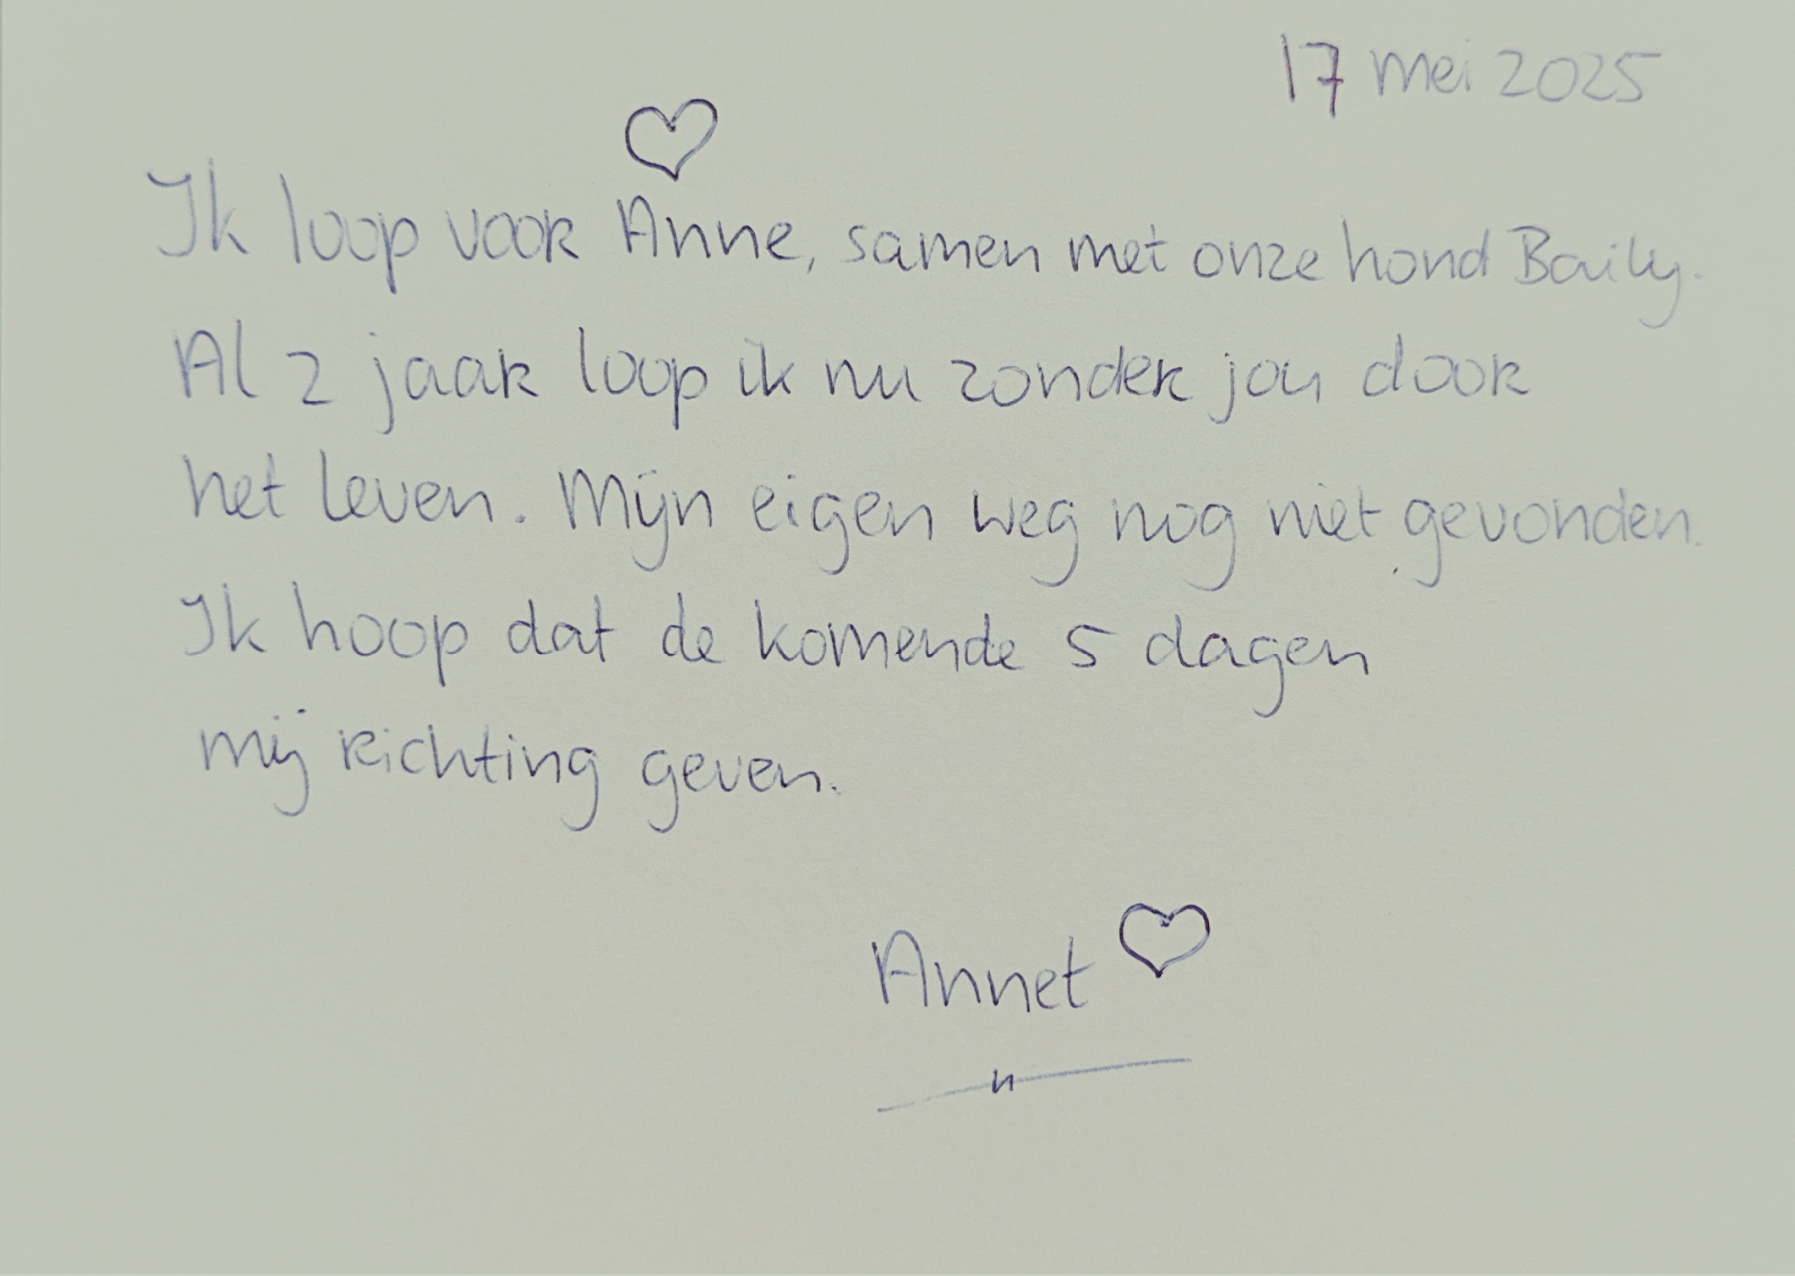 17 mei 2025
♡
Ik loop voor Anne, samen met onze hond Baily.
Al 2 jaar loop ik nu zonder jou door
het leven. Mijn eigen weg nog niet gevonden.
Ik hoop dat de komende 5 dagen
mij richting geven.
Annet ♡